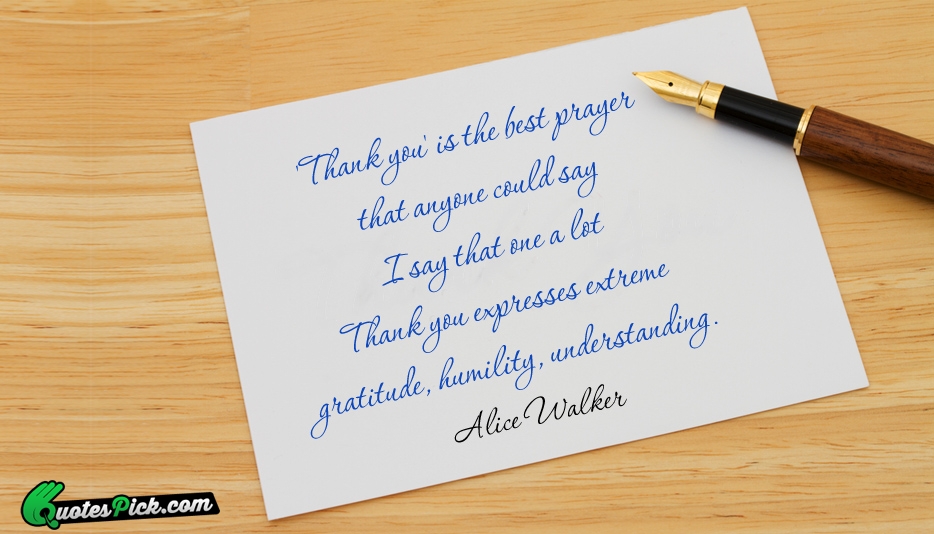 'Thank you' is the best prayer
that anyone could say
I say that one a lot
Thank you expresses extreme
gratitude, humility, understanding.
Alice Walker
QuotesPick.com